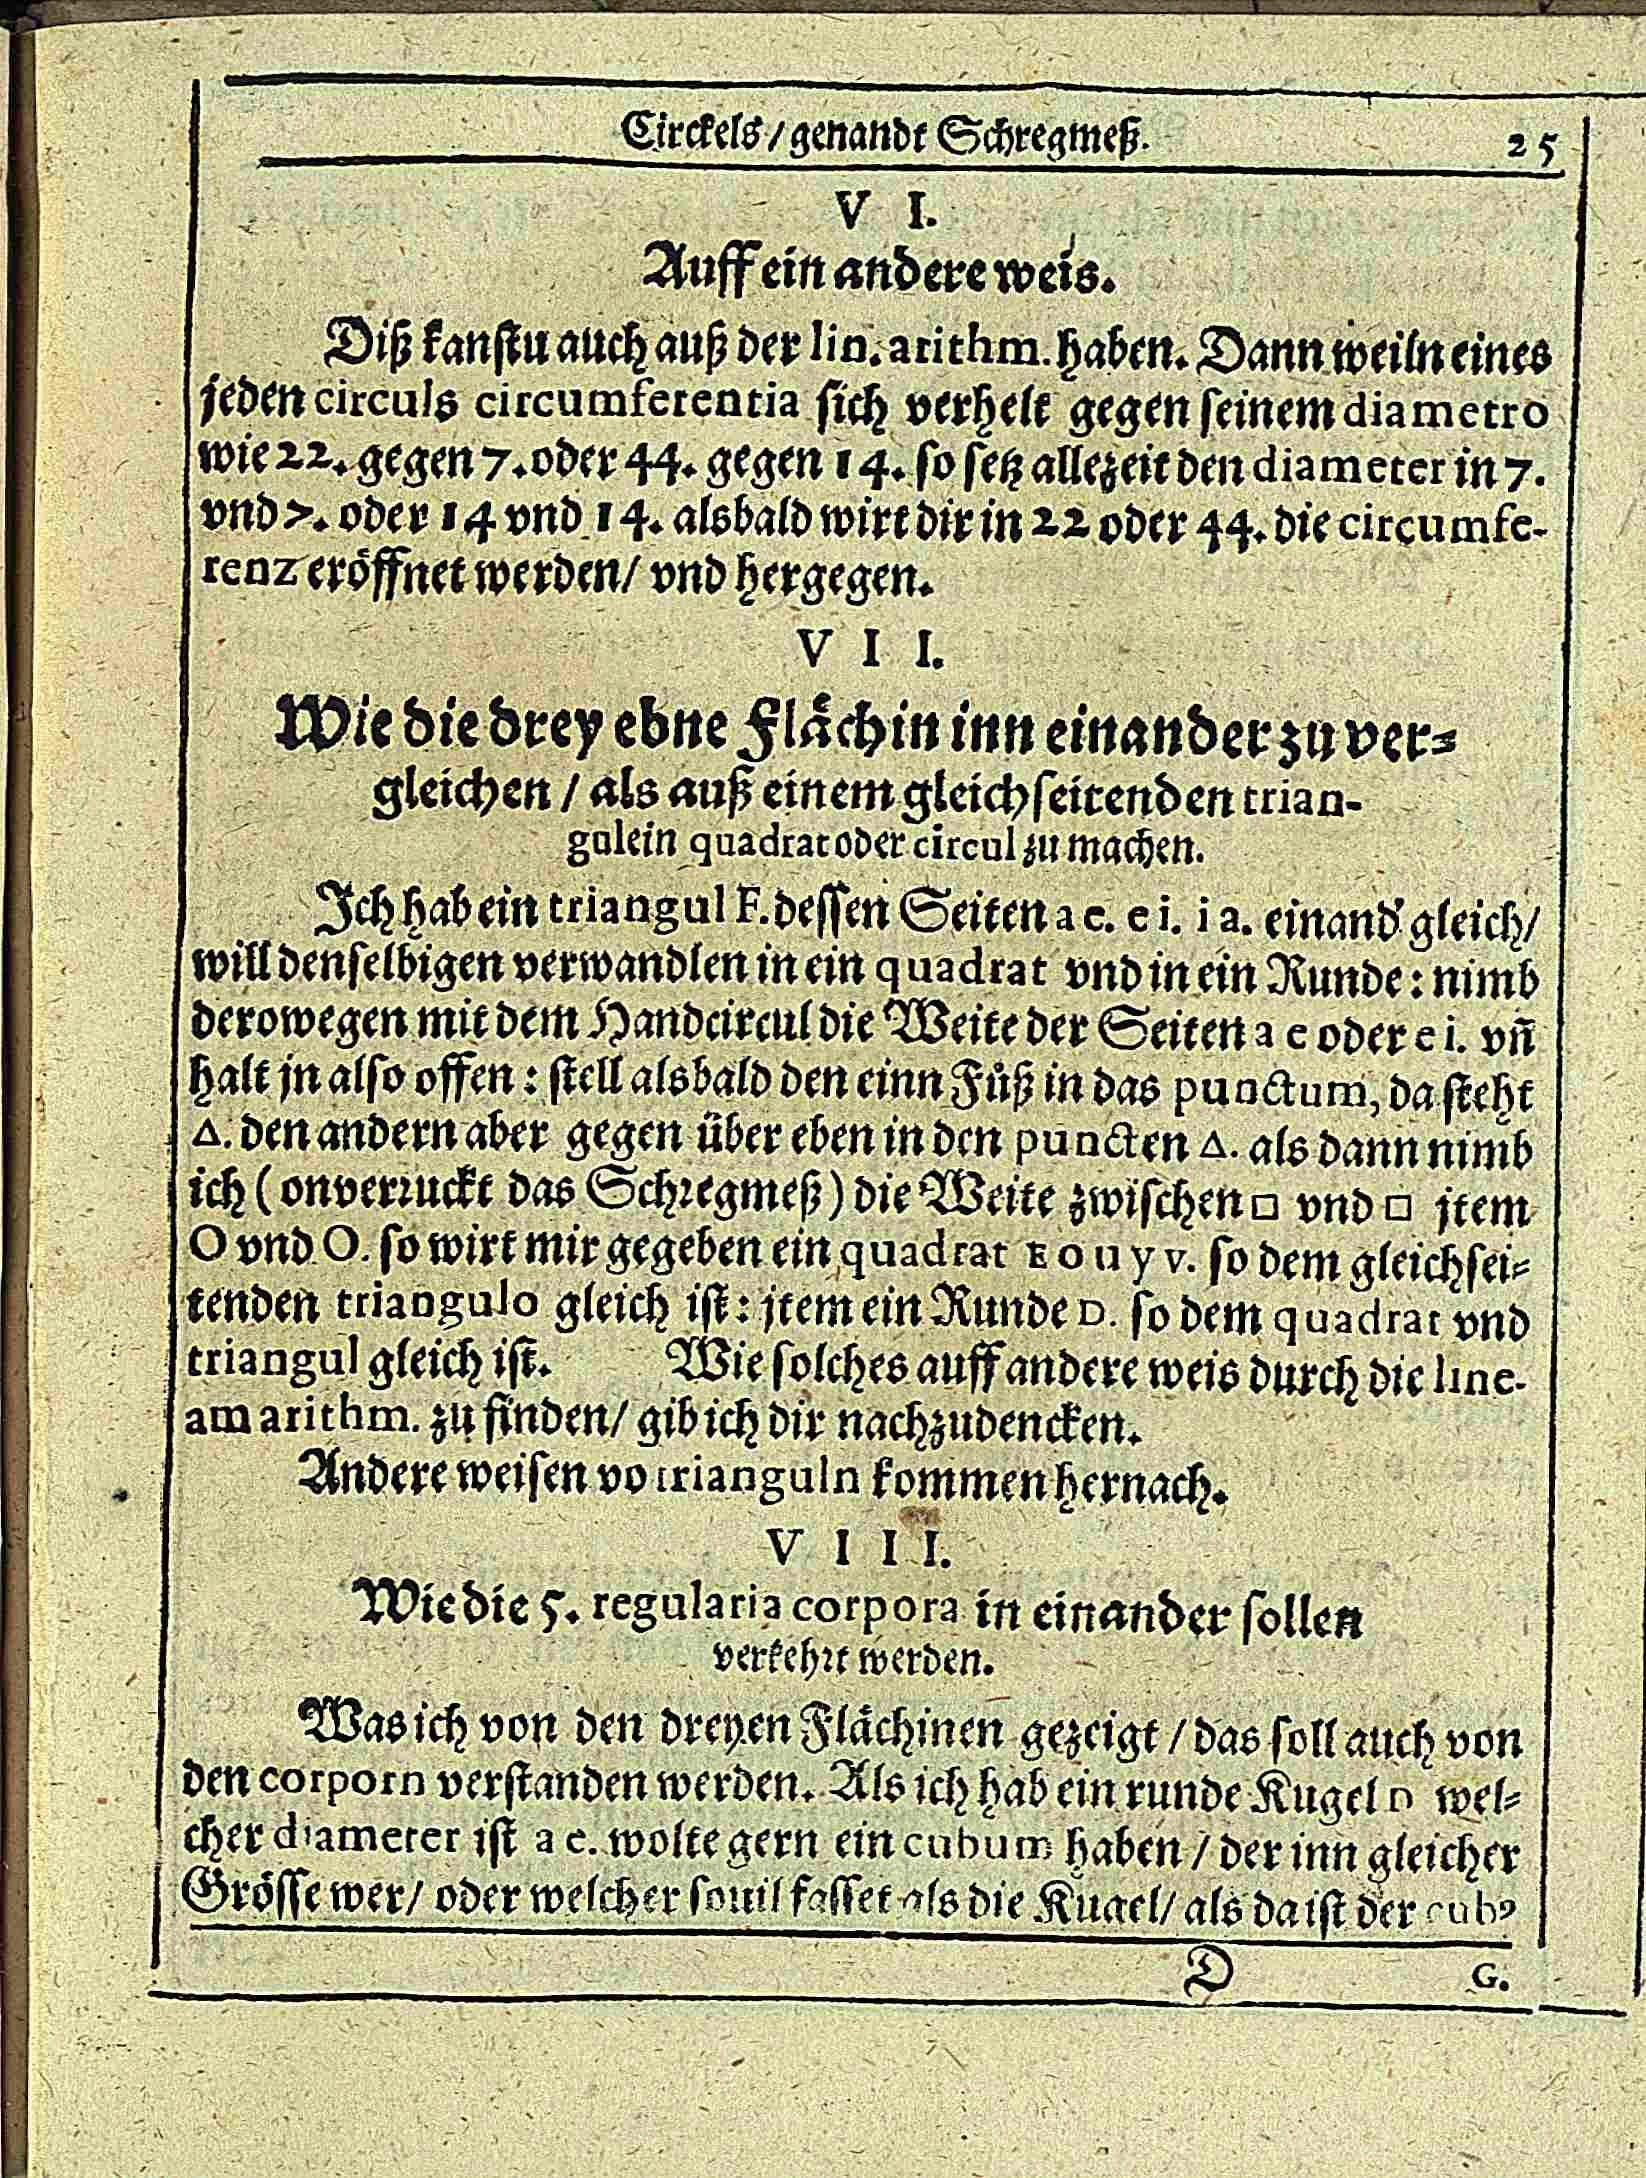 Circkels / genandt Schregmeß.
25
V I.
Auff ein andere weis.
Diß kanstu auch auß der lin. arithm. haben. Dann weiln eines
jeden circuls circumferentia sich verhelt gegen seinem diametro
wie 22. gegen 7. oder 44. gegen 14. so setz allezeit den diameter in 7.
vnd 7. oder 14 vnd 14. alsbald wirt dir in 22 oder 44. die circumfe-
renz eröffnet werden / vnd hergegen.
V I I.
Wie die drey ebne Flächin inn einander zu ver-
gleichen / als auß einem gleichseitenden trian-
gulein quadrat oder circul zu machen.
Ich hab ein triangul F. dessen Seiten a e. e i. i a. einand' gleich /
will denselbigen verwandlen in ein quadrat vnd in ein Runde: nimb
derowegen mit dem Handcircul die Weite der Seiten a e oder e i. vñ
halt jn also offen: stell alsbald den einn Fůß in das punctum, da steht
△. den andern aber gegen über eben in den puncten △. als dann nimb
ich (onverruckt das Schregmeß) die Weite zwischen □ vnd □ jtem
O vnd O. so wirt mir gegeben ein quadrat E o u y v. so dem gleichsei-
tenden triangulo gleich ist: jtem ein Runde D. so dem quadrat vnd
triangul gleich ist. Wie solches auff andere weis durch die line-
am arithm. zu finden / gib ich dir nachzudencken.
Andere weisen vo trianguln kommen hernach.
V I I I.
Wie die 5. regularia corpora in einander sollen
verkehrt werden.
Was ich von den dreyen Flächinen gezeigt / das soll auch von
den corporn verstanden werden. Als ich hab ein runde Kugel D wel-
cher diameter ist a e. wolte gern ein cubum haben / der inn gleicher
Grösse wer / oder welcher souil fasset als die Kugel / als da ist der cubꝰ
D
G.